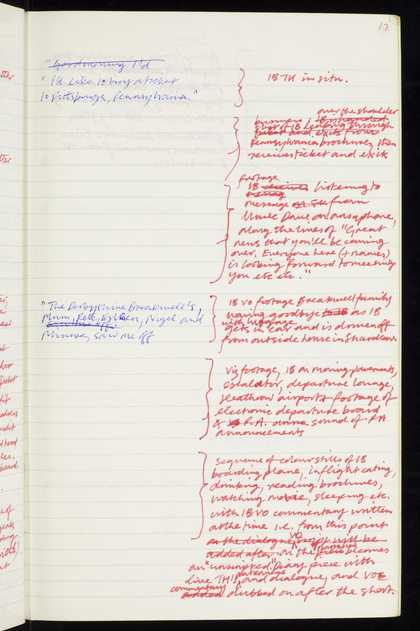 17
"Good morning I'd
"I'd like to buy a ticket
to Pittsburgh, Pennsylvania."
IB TH in situ.
over the shoulder
IB
ticket and exits from
Pennsylvania brochures, then
receives ticket and exits
footage
IB listening to
message from
Uncle Dave on ansaphone,
along the lines of "Great
news that you'll be coming
over, Everyone here (+ names)
is looking forward to meeting
you etc etc."
"The Derbyshire Breakwell's,
Mum, Nigel and
saw me off
IB VO footage Breakwell family
waving goodbye as IB
with suitcase
gets in car and is driven off
from outside house in
Via footage, IB on moving pavements,
escalator, departure lounge,
Heathrow airport + footage of
electronic departure board
& P.A. sound of PA
announcements
sequence of colour stills of IB
boarding plane, inflight eating,
drinking, reading, brochures,
watching movie, sleeping etc.
with IB VO commentary written
at the time i.e. from this point
on the dialogue will be
added after on the becomes
an "unscripted" diary piece with
live TH and dialogue, and VOE
commentary
added dubbed on after the short.